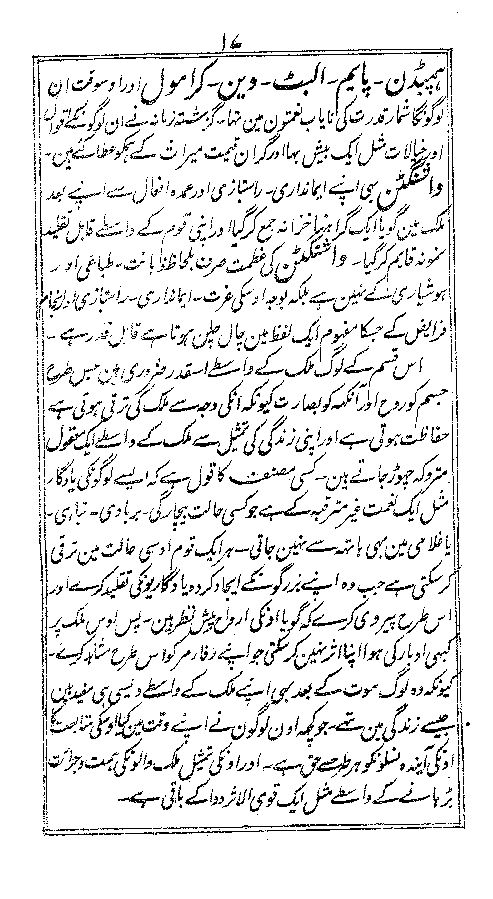 ۱۷
ہمپڈن - پایم - الیٹ - وین - کرامول اور اوسوقت ان
لوگونکا شمار قدرت کی نایاب نعمتون مین تہا - گزشتہ زمانہ نے ان لوگونکے اقوال
اور خیالات مثل ایک بیش بہا اور گران قیمت میراث کے ہمکو عطا کئے ہین -
واشنگٹن بہی اپنے ایمانداری - راستبازی اور عمدہ افعال سے اپنے بعد
ملک مین گویا ایک گرانبہا خزانہ جمع کر گیا اور اپنی قوم کے واسطے قابل تقلید
نمونہ قایم کر گیا - واشنگٹن کی عظمت صرف بلحاظ لیاقت - طباعی اور
ہوشیاری کے نہین ہے بلکہ بوجہ اوسکی عزت - ایمانداری - راستبازی اور انجام
فرایض کے جسکا مفہوم ایک لفظ مین چال چلن ہوتا ہے قابل قدر ہے -
اس قسم کے لوگ ملک کے واسطے اسقدر ضروری ہین جس طرح
جسم کو روح اور آنکہہ کو بصارت کیونکہ انکی وجہ سے ملک کی ترقی ہوتی ہے
حفاظت ہوتی ہے اور اپنی زندگی کی تمثیل سے ملک کے واسطے ایک معقول
متروکہ چہوڑ جاتے ہین - کسی مصنف کا قول ہے کہ ایسے لوگونکی یادگار
مثل ایک نعمت غیر مترقبہ کے ہے جو کسی حالت بیچارگی - بربادی - تباہی -
یا غلامی مین بہی ہاتہہ سے نہین جاتی - ہر ایک قوم اوسی حالت مین ترقی
کر سکتی ہے جب وہ اپنے بزرگونکے ایجاد کردہ یادگارونکی تقلید کرے اور
اس طرح پیروی کرے کہ گویا اونکی ارواح پیش نظر ہین - پس اوس ملک پر
کبہی ادبار کی ہوا اپنا اثر نہین کر سکتی جو اپنے رفارمر کو اس طرح مشاہدہ کرے -
کیونکہ وہ لوگ موت کے بعد بہی اپنے ملک کے واسطے ویسی ہی مفید ہین
جیسے زندگی مین تہے - جو کچہہ اون لوگون نے اپنے وقت مین کیا اوسکی متابعت کا
اونکی آیندہ نسلونکو ہر طرح سے حق ہے - اور اونکی تمثیل ملک والونکی ہمت و جرائت
بڑہانے کے واسطے مثل ایک قوی الاثر دوا کے باقی ہے -